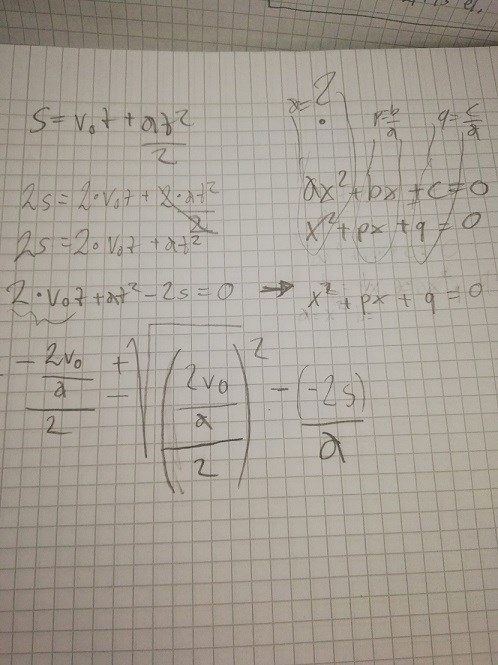 S = v₀t + at²/2
a = ?
p = b/a
q = c/a
2s = 2·v₀t + 2·at²/2
ax² + bx + c = 0
2s = 2·v₀t + at²
x² + px + q = 0
2·v₀t + at² - 2s = 0 → x² + px + q = 0
- (2v₀/a)/2 ± √(((2v₀/a)/2)² - (-2s)/a)